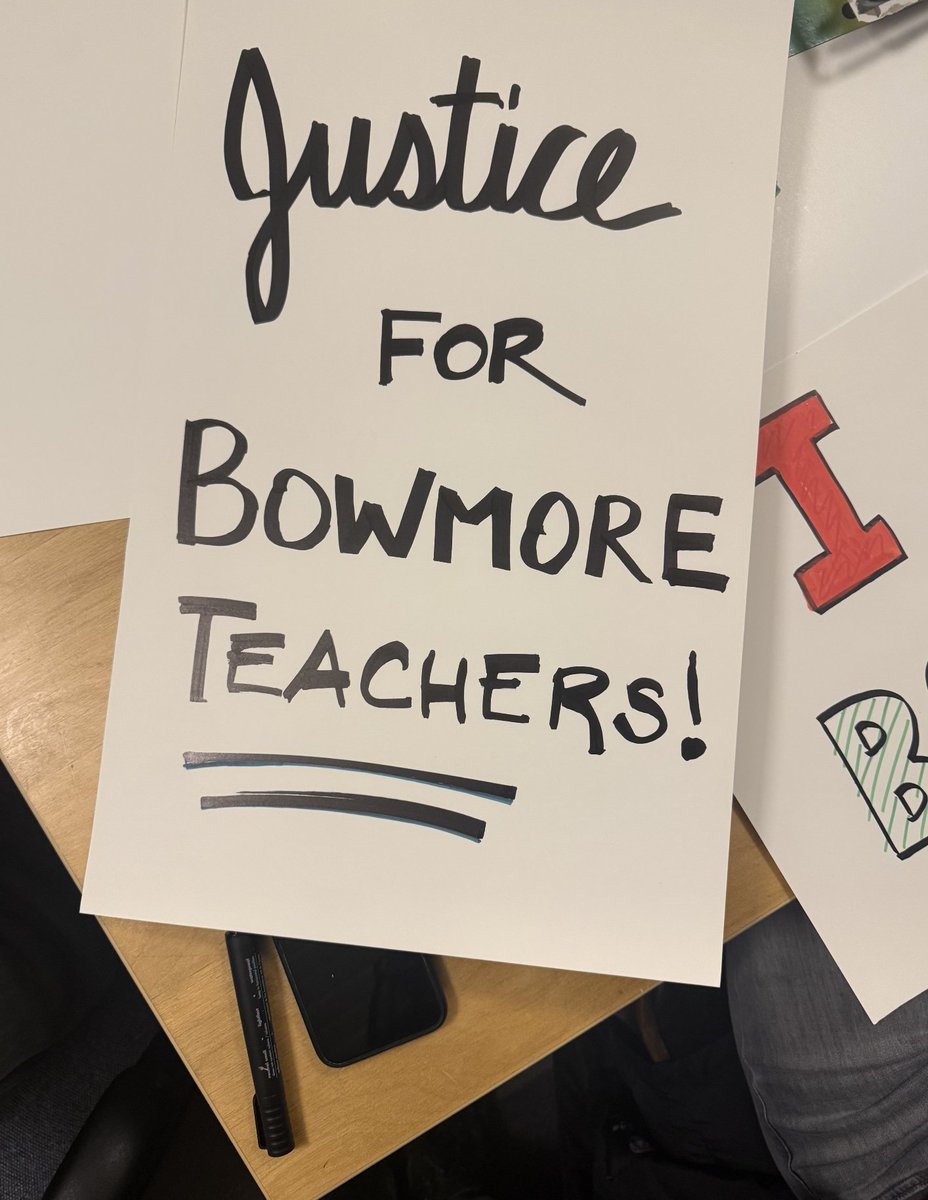 Justice
FOR
BOWMORE
TEACHERS!
I
B